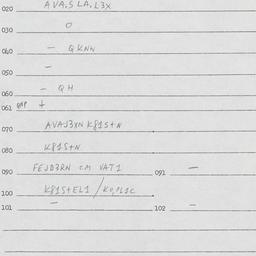 020 AVA.SLA.L3X
030 O
040 — QKNN
050 —
060 — QH
061 QAP ↓
070 AVAJ3XN K81S+N
080 K81S+N
090 FEJD3RN CM VAT1 091 —
100 K81S+EL1 /
101 — 102 —